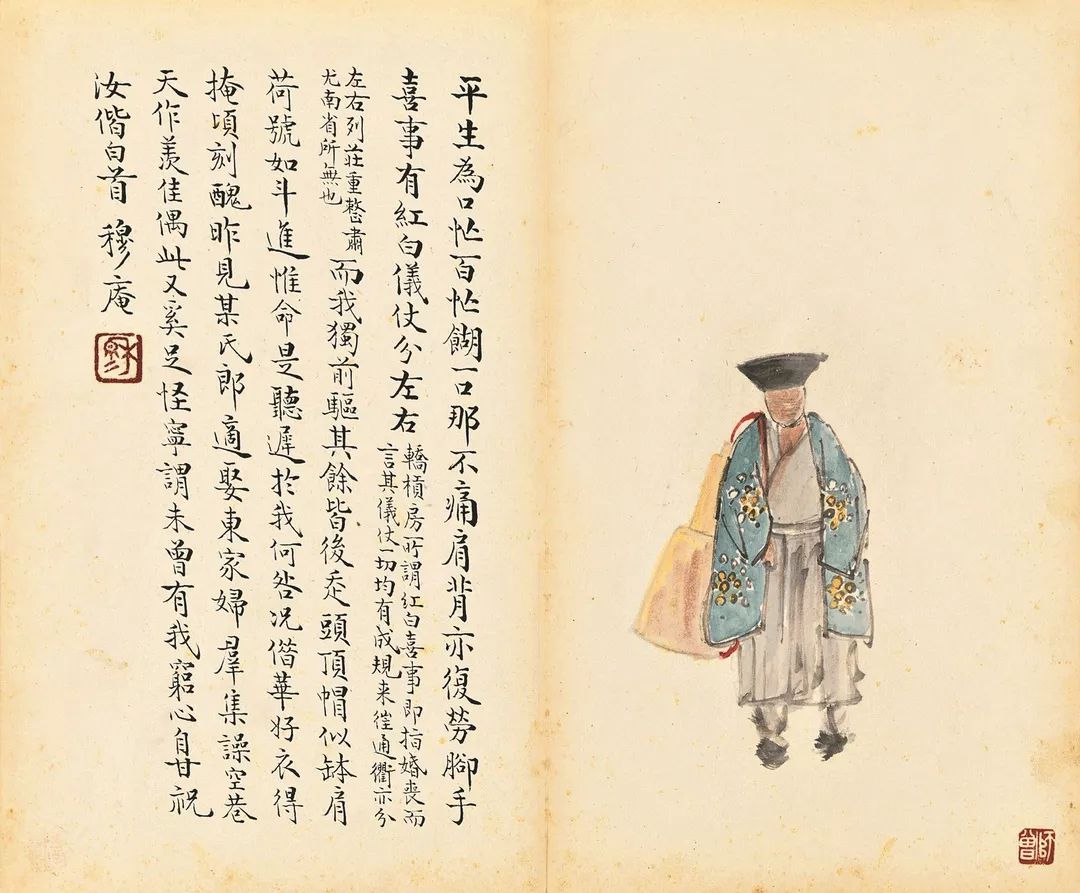 平生為口忙百忙餬一口那不痛肩背亦復勞腳手
喜事有紅白儀仗分左右
轎槓房所謂紅白喜事即指婚喪而
言其儀仗一切均有成規来往通衢亦分
左右列莊重整肅
尤南省所無也
而我獨前驅其餘皆後走頭頂帽似缽肩
荷號如斗進惟命是聽遲於我何咎况借華好衣得
掩頃刻醜昨見某氏郎適娶東家婦羣集譟空巷
天作羨佳偶此又奚足怪寧謂未曾有我窮心自甘祝
汝偕白首 穆庵
師曾